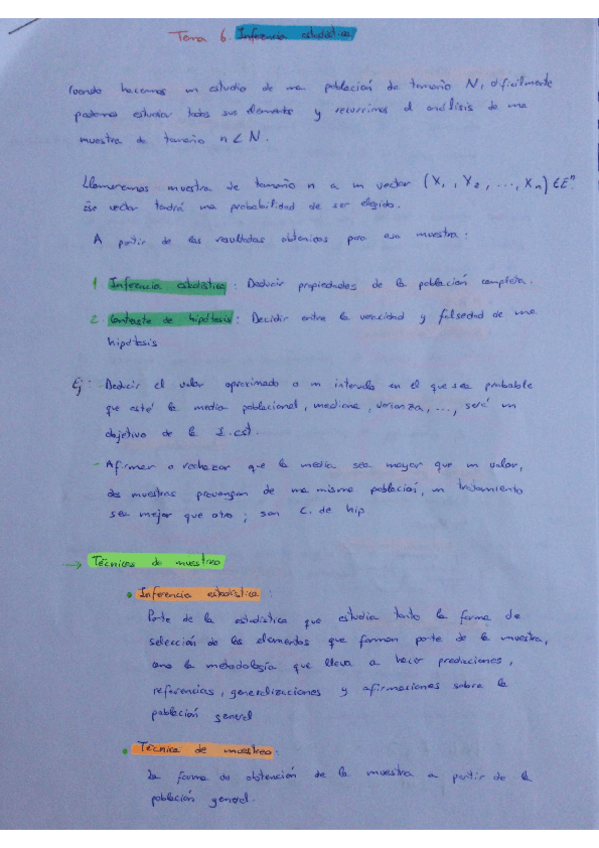 Tema 6. Inferencia estadística
Cuando hacemos un estudio de una población de tamaño N, dificilmente
podemos estudiar todos sus elementos y recurrimos al análisis de una
muestra de tamaño n < N.
Llamaremos muestra de tamaño n a un vector (X₁, X₂, ..., Xn) ∈ Eⁿ
Ese vector tendrá una probabilidad de ser elegido.
A partir de los resultados obtenidos para esa muestra:
1 Inferencia estadística: Deducir propiedades de la población completa.
2 Contraste de hipótesis: Decidir entre la veracidad y falsedad de una
hipótesis
Ej: - Deducir el valor aproximado o un intervalo en el que sea probable
que esté la media poblacional, mediana, varianza, ..., será un
objetivo de la I. est.
- Afirmar o rechazar que la media sea mayor que un valor,
dos muestras provengan de una misma población, un tratamiento
sea mejor que otro; son C. de hip
→ Técnicas de muestreo
• Inferencia estadística:
Parte de la estadística que estudia tanto la forma de
selección de los elementos que forman parte de la muestra,
como la metodología que lleva a hacer predicciones,
referencias, generalizaciones y afirmaciones sobre la
población general
• Técnica de muestreo:
La forma de obtención de la muestra a partir de la
población general.